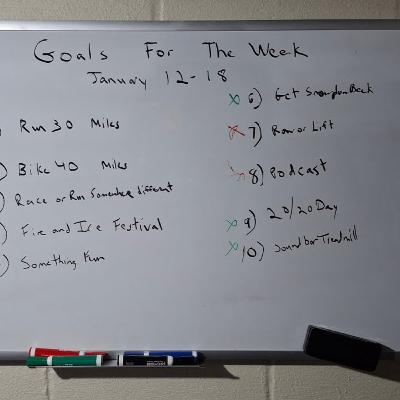 Goals For The Week
January 12-18
) Run 30 Miles
) Bike 40 Miles
) Race or Run Somewhere different
) Fire and Ice Festival
) Something Fun
x 6) Get Back
x 7) Row or Lift
8) Podcast
x 9) 20/20 Day
x 10) Soundbar Treadmill